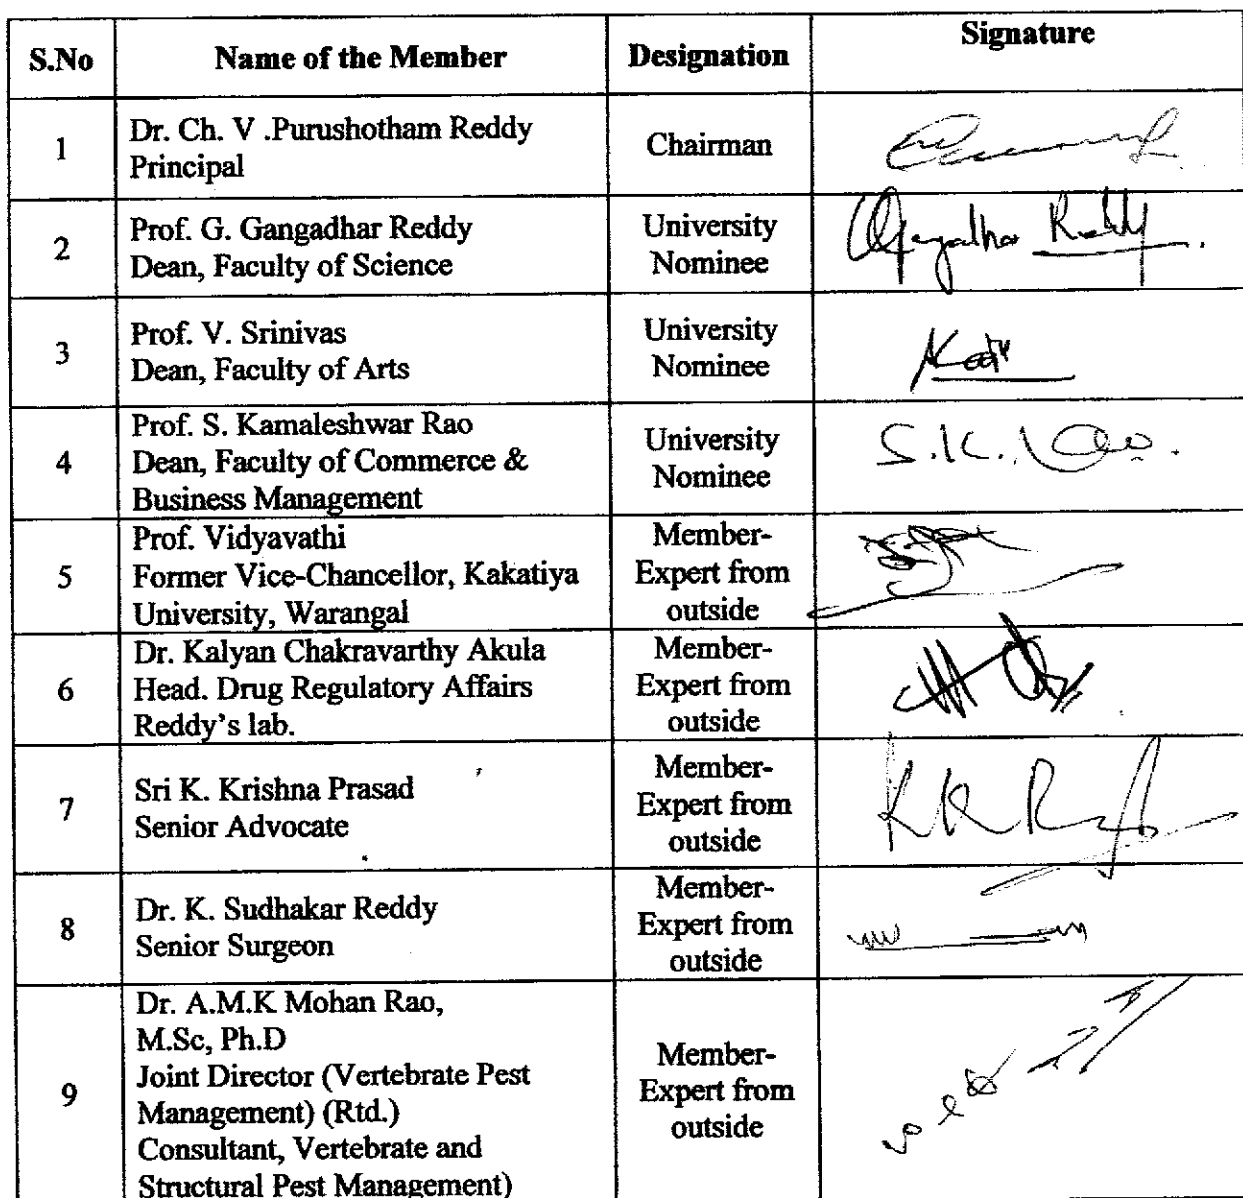 S.No Name of the Member Designation Signature
1
Dr. Ch. V .Purushotham Reddy
Principal
Chairman
2
Prof. G. Gangadhar Reddy
Dean, Faculty of Science
University
Nominee
Gangadhar Reddy
3
Prof. V. Srinivas
Dean, Faculty of Arts
University
Nominee
4
Prof. S. Kamaleshwar Rao
Dean, Faculty of Commerce &
Business Management
University
Nominee
S.K. Rao.
5
Prof. Vidyavathi
Former Vice-Chancellor, Kakatiya
University, Warangal
Member-
Expert from
outside
6
Dr. Kalyan Chakravarthy Akula
Head. Drug Regulatory Affairs
Reddy's lab.
Member-
Expert from
outside
7
Sri K. Krishna Prasad
Senior Advocate
Member-
Expert from
outside
8
Dr. K. Sudhakar Reddy
Senior Surgeon
Member-
Expert from
outside
9
Dr. A.M.K Mohan Rao,
M.Sc, Ph.D
Joint Director (Vertebrate Pest
Management) (Rtd.)
Consultant, Vertebrate and
Structural Pest Management)
Member-
Expert from
outside